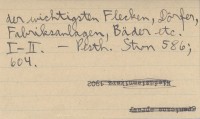 der wichtigsten Flecken, Dörfer,
Fabriksanlagen, Bäder etc.
I-II. — Pesth. Strm 586;
604.